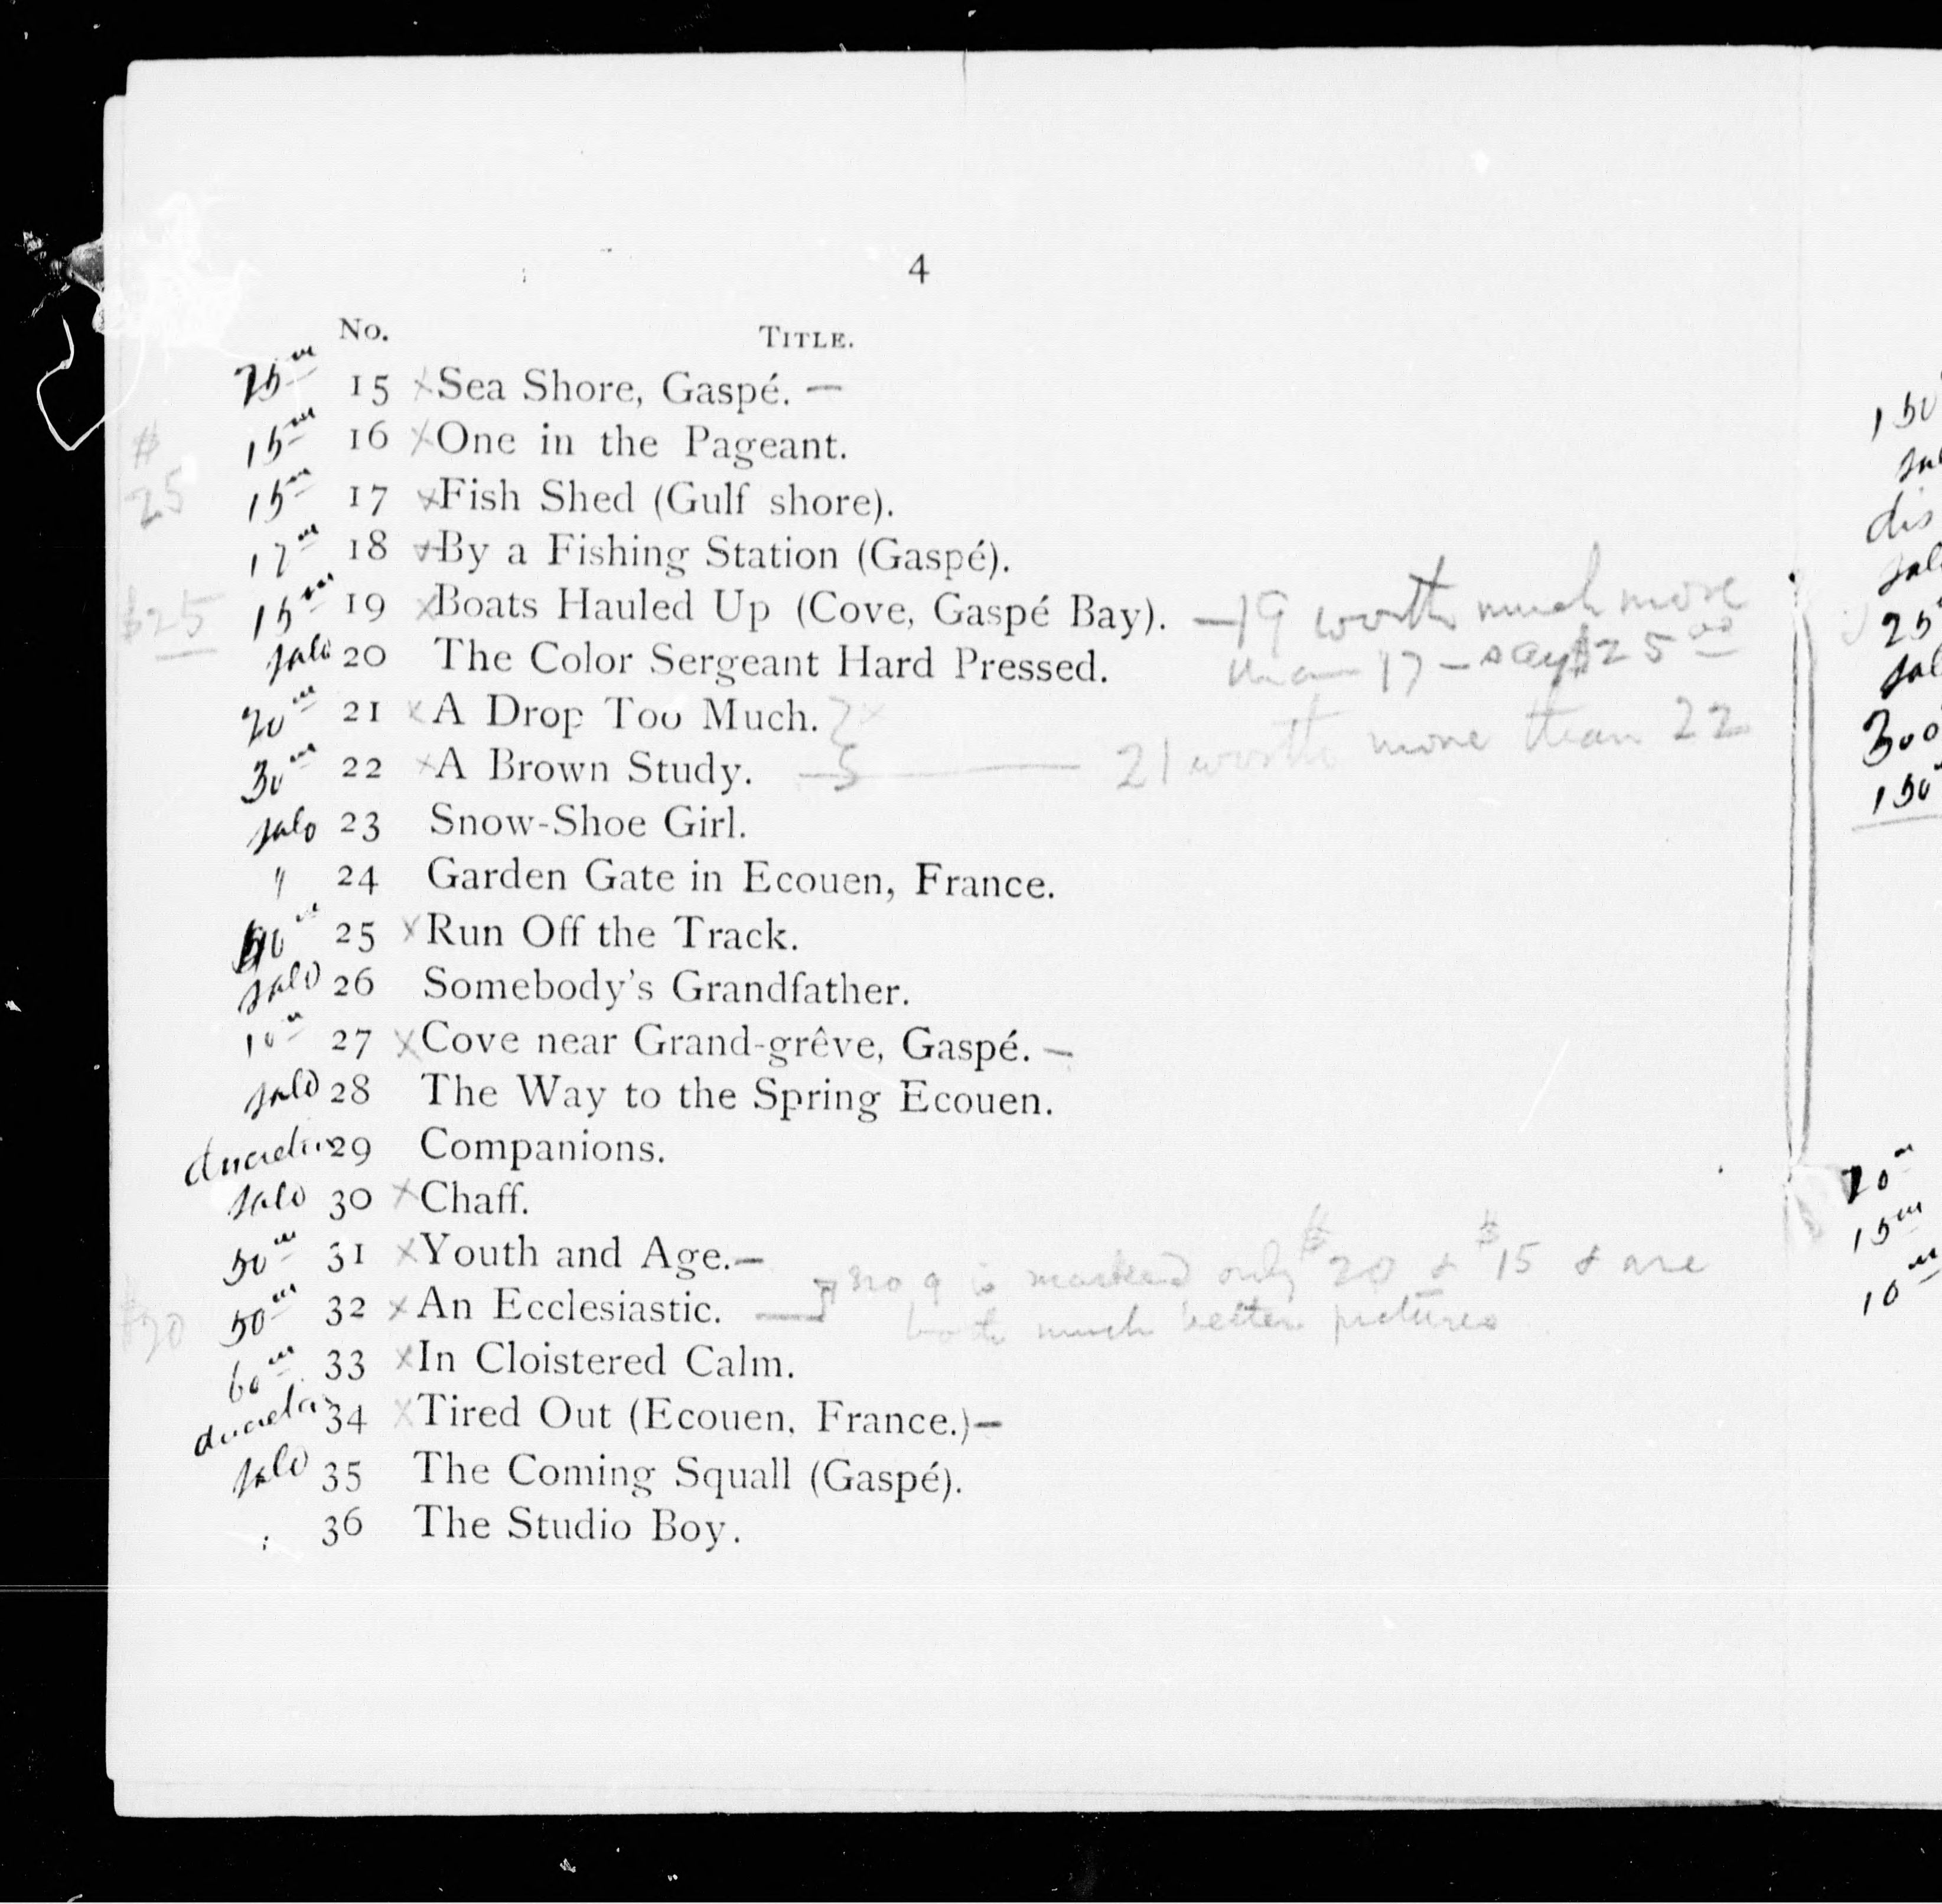 4
No. TITLE.
25 15 x Sea Shore, Gaspé. —
$ 15 16 x One in the Pageant.
25 15 17 x Fish Shed (Gulf shore).
17 18 By a Fishing Station (Gaspé).
$25 15 19 x Boats Hauled Up (Cove, Gaspé Bay). — 19 worth much more
sold 20 The Color Sergeant Hard Pressed. than 17 – say $25 00
20 21 x A Drop Too Much.
30 22 x A Brown Study. — 21 worth more than 22
sold 23 Snow-Shoe Girl.
" 24 Garden Gate in Ecouen, France.
25 x Run Off the Track.
sold 26 Somebody's Grandfather.
10 27 x Cove near Grand-grêve, Gaspé. —
sold 28 The Way to the Spring Ecouen.
29 Companions.
sold 30 x Chaff.
50 31 x Youth and Age. —
no 9 is marked only $20 & $15 & are
50 32 x An Ecclesiastic. —
both much better pictures
60 33 x In Cloistered Calm.
34 x Tired Out (Ecouen, France.) —
sold 35 The Coming Squall (Gaspé).
36 The Studio Boy.
150
25
300
150
20
15
10